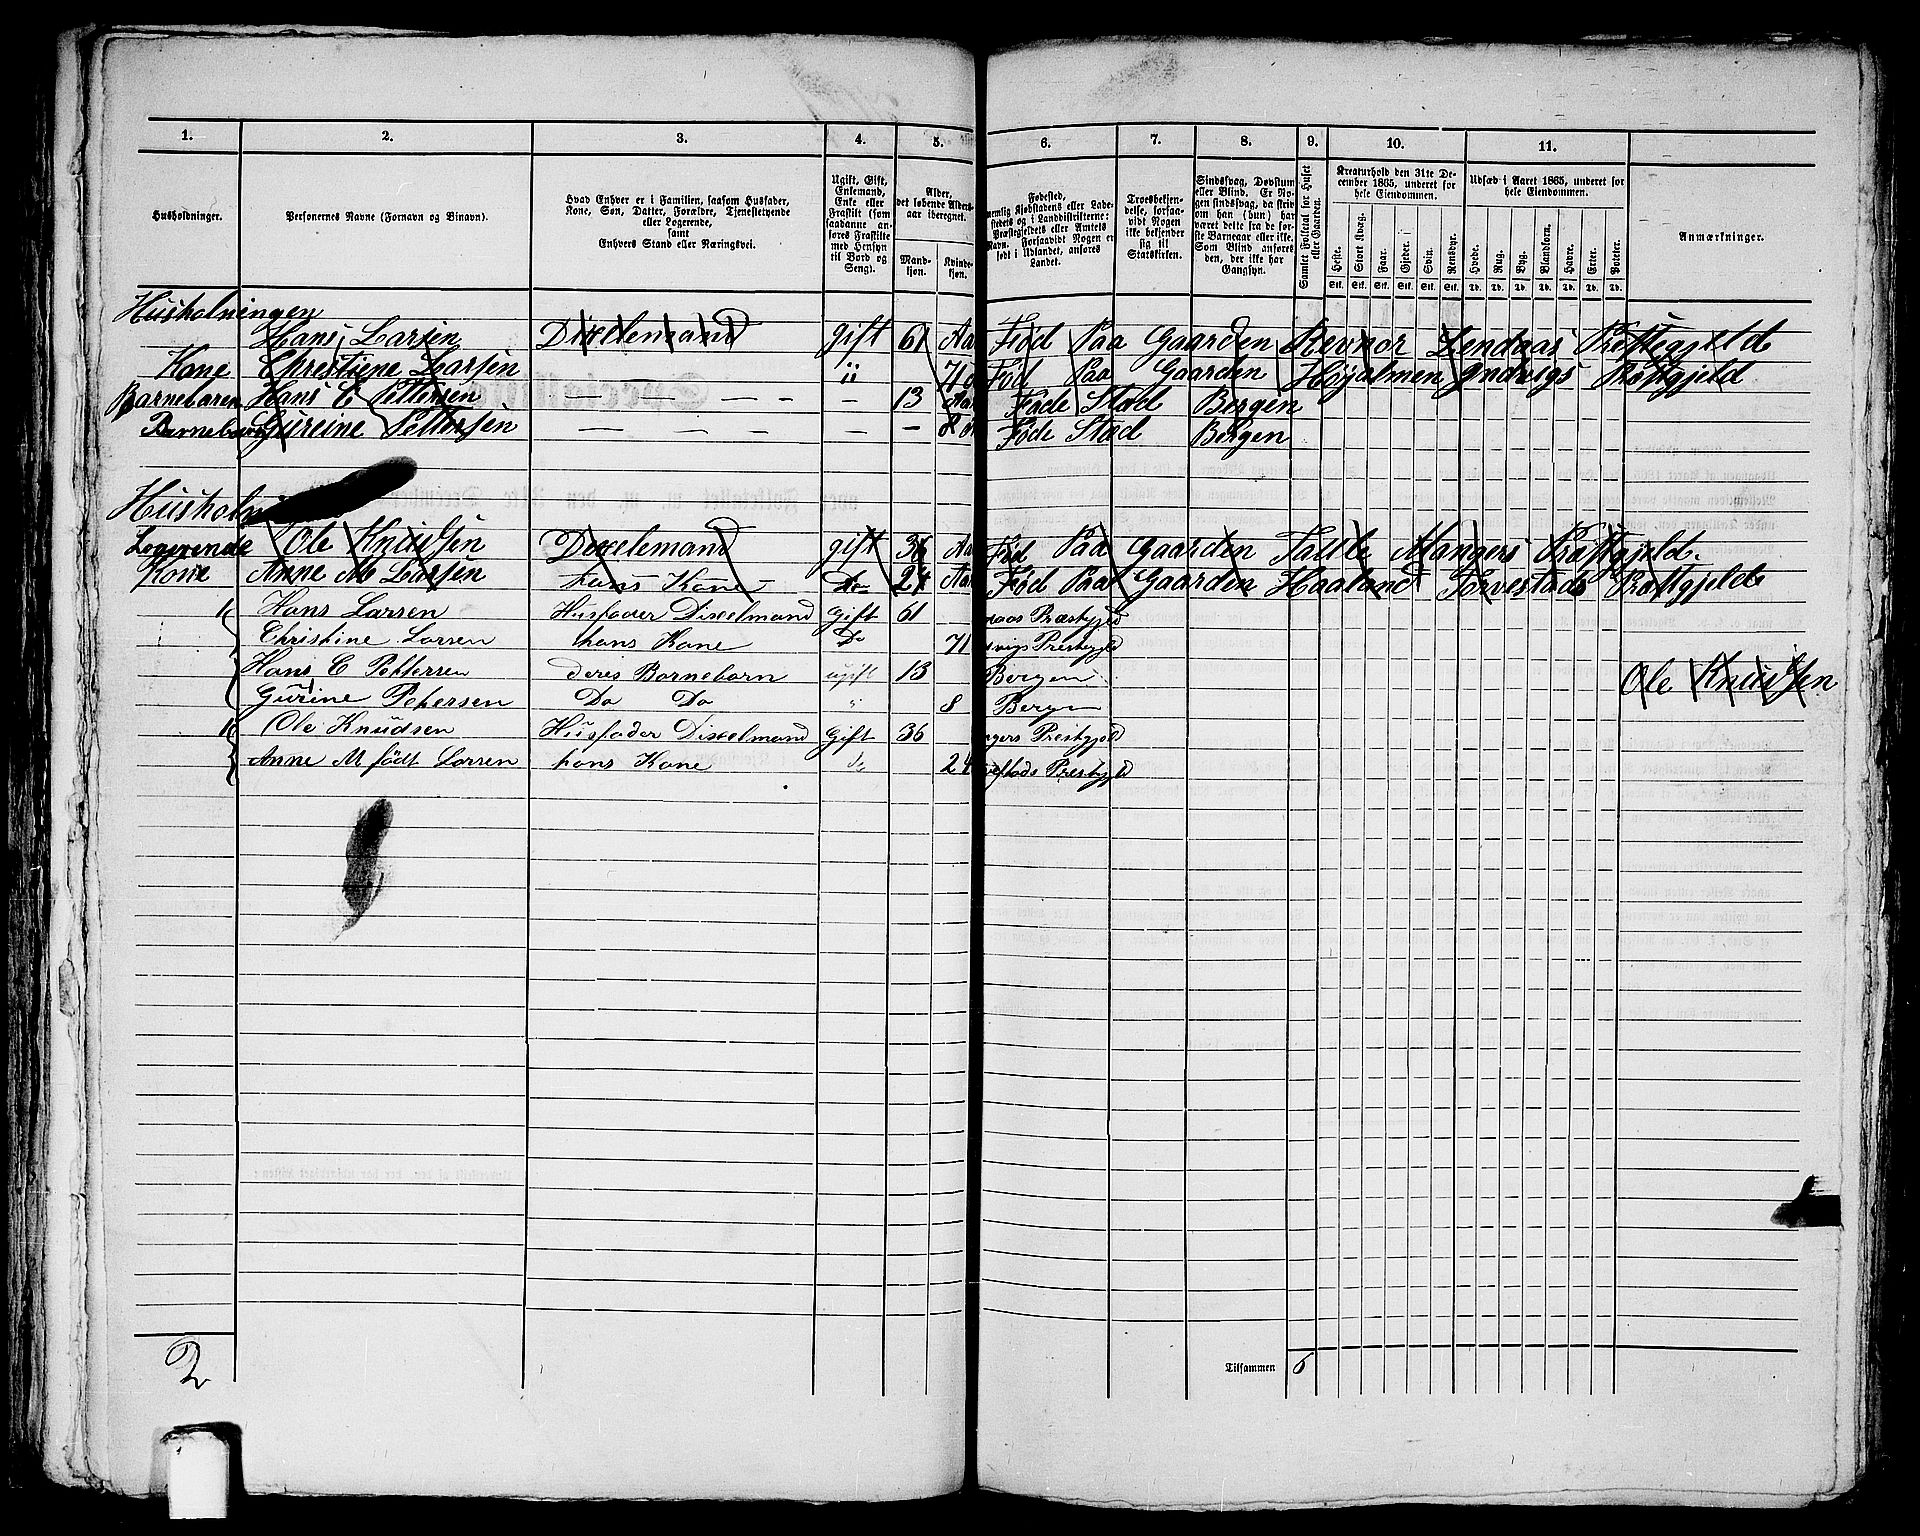 1. 2. 3. 4. 5. 6. 7. 8. 9. 10. 11.
Husholdninger.
Personernes Navne (Fornavn og Binavn).
Hvad Enhver er i Familien, saasom Husfader,
Kone, Søn, Datter, Forældre, Tjenestetyende
eller Logerende,
samt
Enhvers Stand eller Næringsvei.
Ugift, Gift,
Enkemand,
Enke eller
Fraskilt (som
saadanne an-
føres Fraskilte
med Hensyn
til Bord og
Seng).
Alder,
det løbende Alders-
aar iberegnet.
Mand-
kjøn.
Kvinde-
kjøn.
Fødested,
nemlig Kjøbstadens eller Lade-
stedets og i Landdistrikterne:
Præstegjeldets eller Amtets
Navn. Forsaavidt Nogen er
født i Udlandet, anføres
Landet.
Troesbekjen-
delse, forsaa-
vidt Nogen
ikke bekjender
sig til
Statskirken.
Sindssvag, Døvstum
eller Blind. Er No-
gen sindssvag, da skriv
om han (hun) har
været dette fra de før-
ste Barneaar eller ikke.
Som Blind anføres
den, der ikke har
Gangsyn.
Samlet Folketal for Huset
eller Gaarden.
Kreaturhold den 31te De-
cember 1865, underet for
hele Eiendommen.
Heste. Stort Kvæg. Faar. Gjeder. Svin. Rensdyr.
Stk. Stk. Stk. Stk. Stk. Stk.
Udsæd i Aaret 1865, underet for
hele Eiendommen.
Hvede. Rug. Byg. Blandkorn. Havre. Erter. Poteter.
Td. Td. Td. Td. Td. Td. Td.
Anmærkninger.
Husholningen
Hans Larsen Dixelemand gift 61 Aar Fød Paa Gaarden Revnor Lendaas Præstegjeld
Kone Christiene Larsen ii 71 Fød Paa Gaarden Høyalmen Indvigs Præstgjeld
Barnebaren Hans C Pettersen — — — — — 13 Aar Føde Stad Bergen
Barnebarn Gureine Pettersen — — — — — — 8 Føde Stad Bergen
Husholn
Logerende Ole Knudsen Dexelemand gift 36 Aar Fød Paa Gaarden Mangers Præstgjeld.
Kone Anne M Larsen hans Kone Do 24 Aar Fød Paa Gaarden Haaland Torvestads Præstgjeld
Hans Larsen Husfader Dixelmand Gift 61 naas Præstgjeld
Christine Larsen hans Kone Do 71 vigs Prestegjeld
Hans C Pettersen deres Barnebarn ugift 13 Bergen
Gurine Petersen Do Do " 8 Bergen
Ole Knudsen
Ole Knudsen Husfader Dixelmand Gift 36 ngers Prestgjeld
Anne M født Larsen hans Kone do 24 vestads Prestgjeld
2
Tilsammen 6